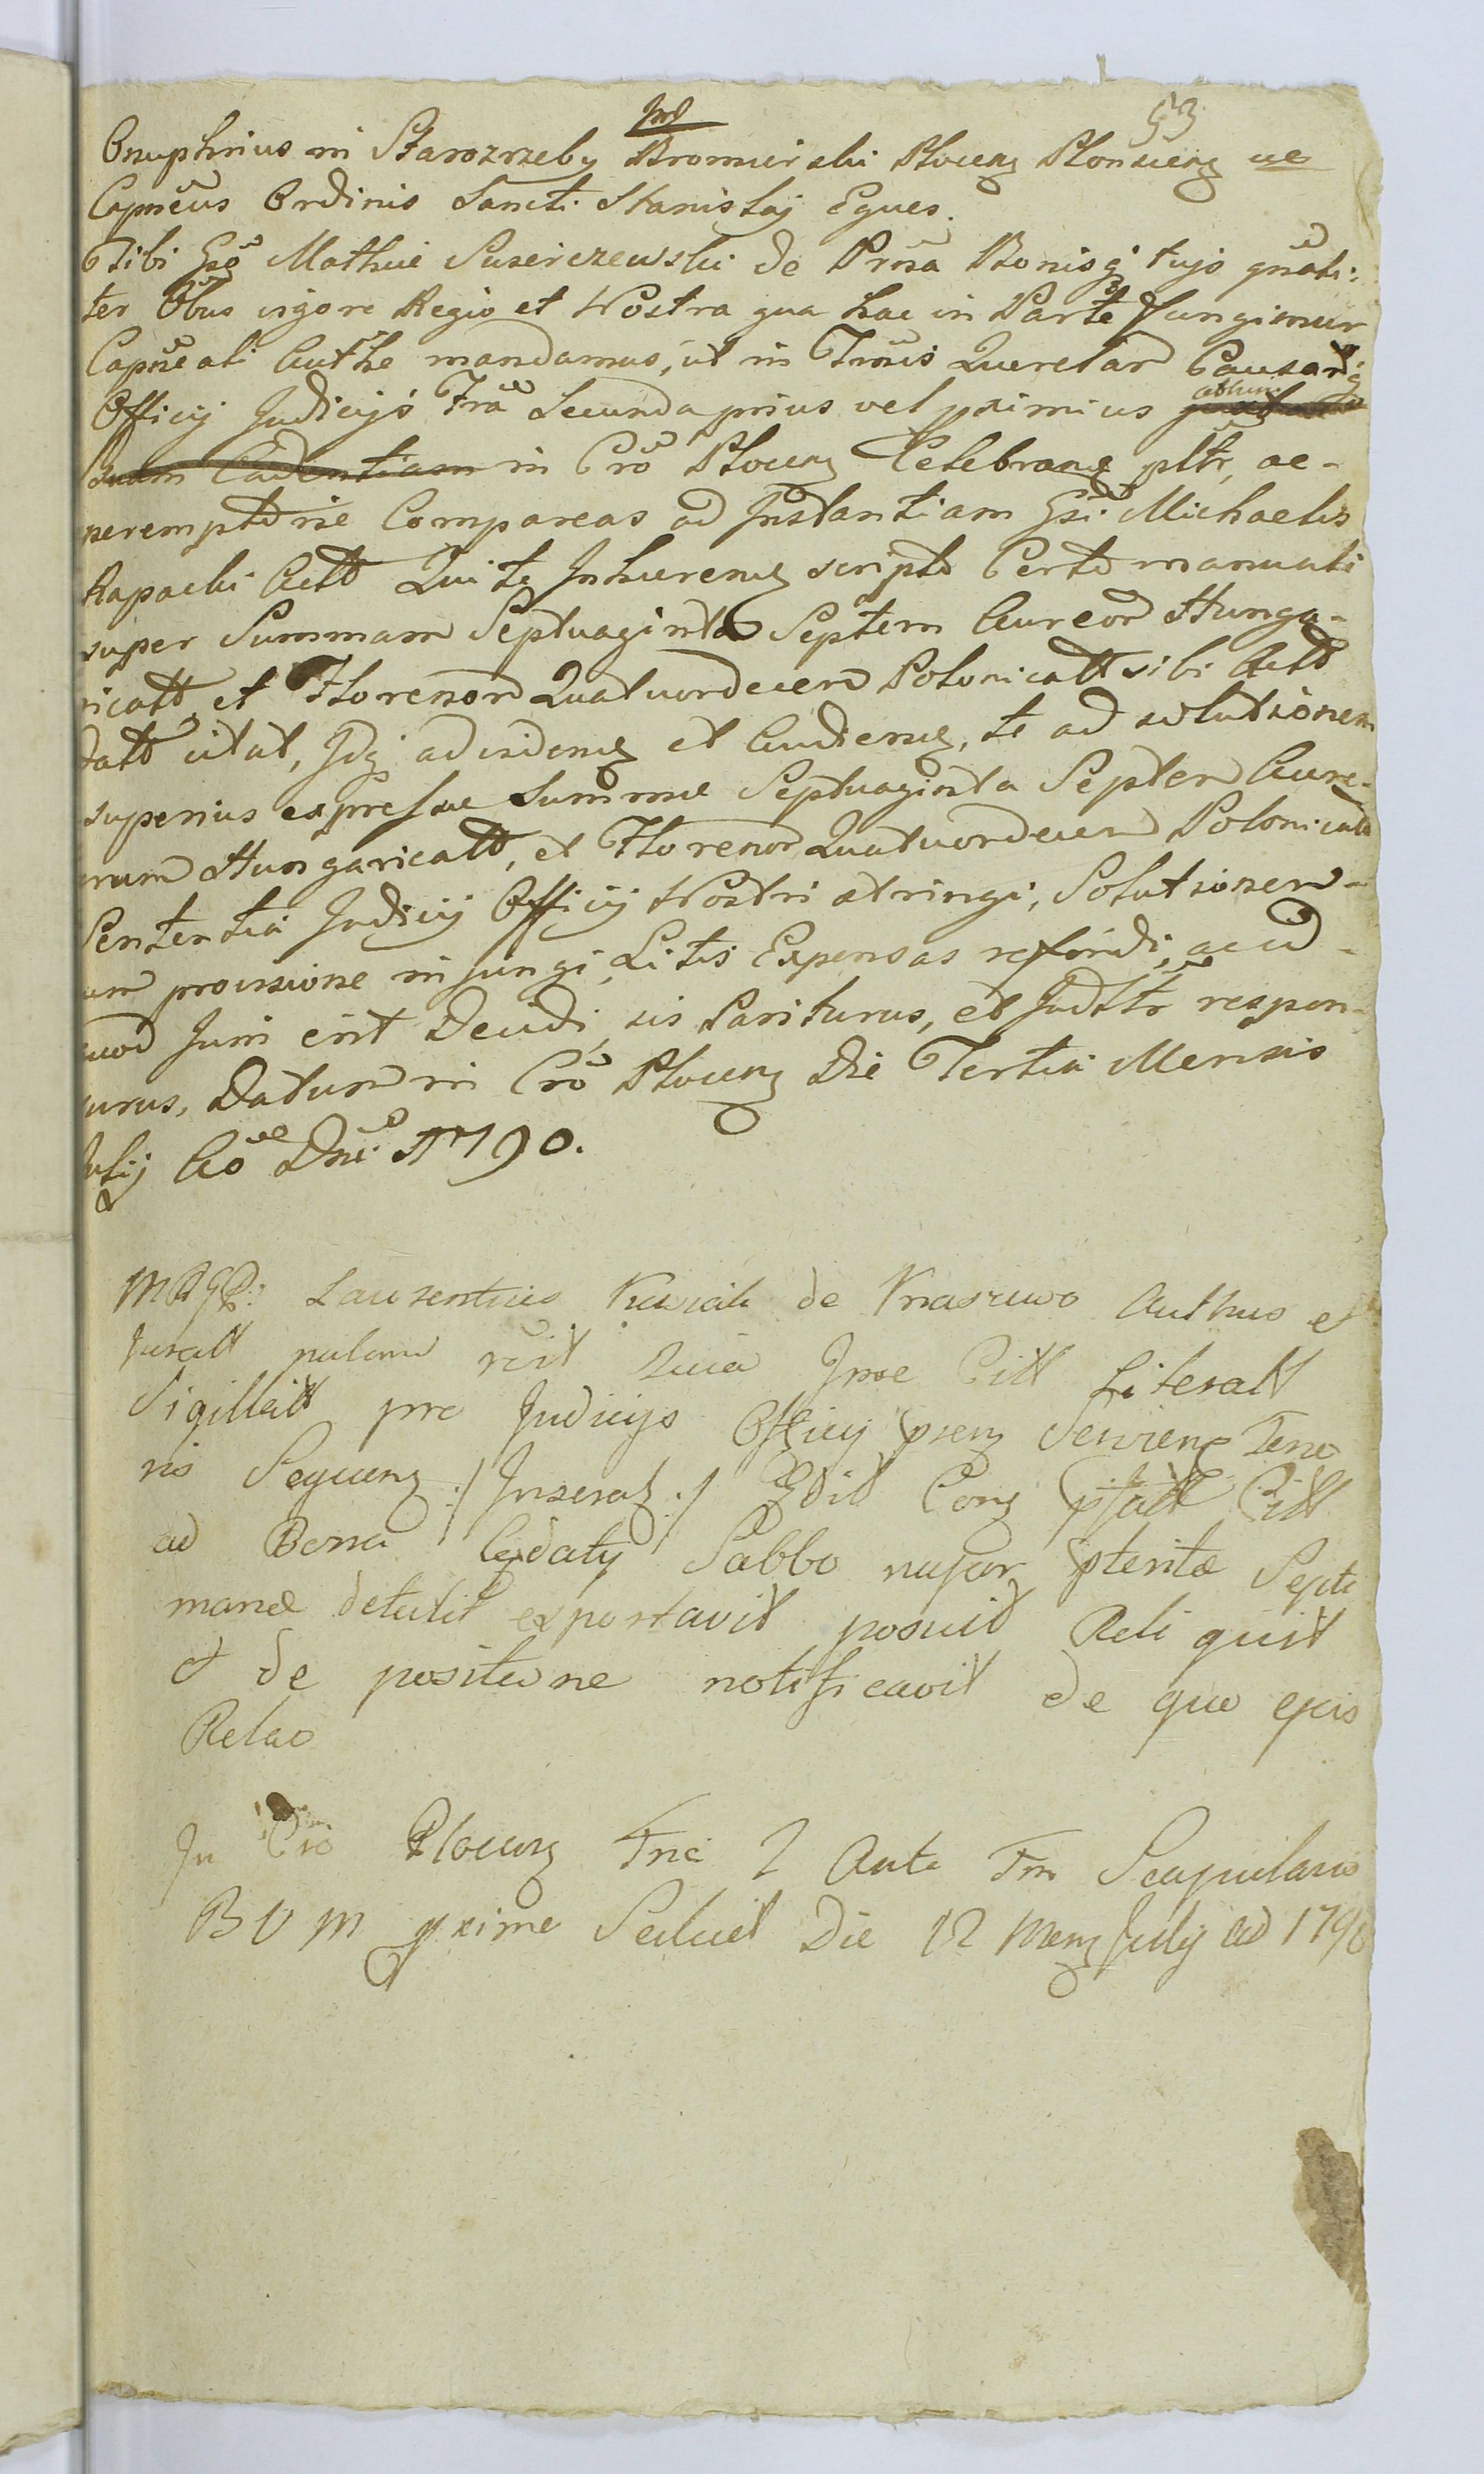 53
Onuphrius in Starozrzeby Bromierski Plocen Plonscen ue
Capneus Ordinis Sancti Stanislaj Eques.
Tibi Gso Mathie Suserczewski de Prsa Bonisq tujs gnali:
ter Obus vigore Regio et Nostra qua hac in Parte fungimur
Capneali Autthe mandamus, ut in Tmis Querelar Causarq
Officij Judicijs Fria Secunda prius vel pximius
suam Cadentiam in Cro Plocen Celebran pltr, ac
peremptorie Compareas ad Instantiam Gsi Michaelis
Rapacki Actt Qui te Inhaeren scripto Certo manuali
super Summam Septuaginta Septem Aureor Hunga-
ricatt et Florenor Quatuordecem Polonicatt sibi Actt
datt citat, Idq ad viden et Audien, te ad solutionem
superius expressae summae Septuaginta Septem Aure-
orum Hungaricatt, et Florenor Quatuordecem Polonicatt
Sententia Judicij Officij Nostri stringi, Solutionem
cum provisione injungi, Litis Expensas refundi, ac id
quod Juris erit Decidi, sis Pariturus, et Judttr respon-
surus, Datum in Cro Plocen Die Tertia Mensis
Julij Ao Dni 1790.
Laurentius de Authus et
Juratt palam rcit Quia Ipse Citt Literatt
Sigillatt pro Judicijs Officij psen Servien Teno
ris Sequen ./ Inserat ./ Edit Con ptatt Citt
ad Bona Citdatij Sabbo nupr pterita Septi
mana detulit exportavit posuit Reliquit
et de positione notificavit de quo ejus
Relao
In Cro Plocen Fria 2 Ante Fm Scapularis
B V M pxime Die 12 Men Julij AD 1790